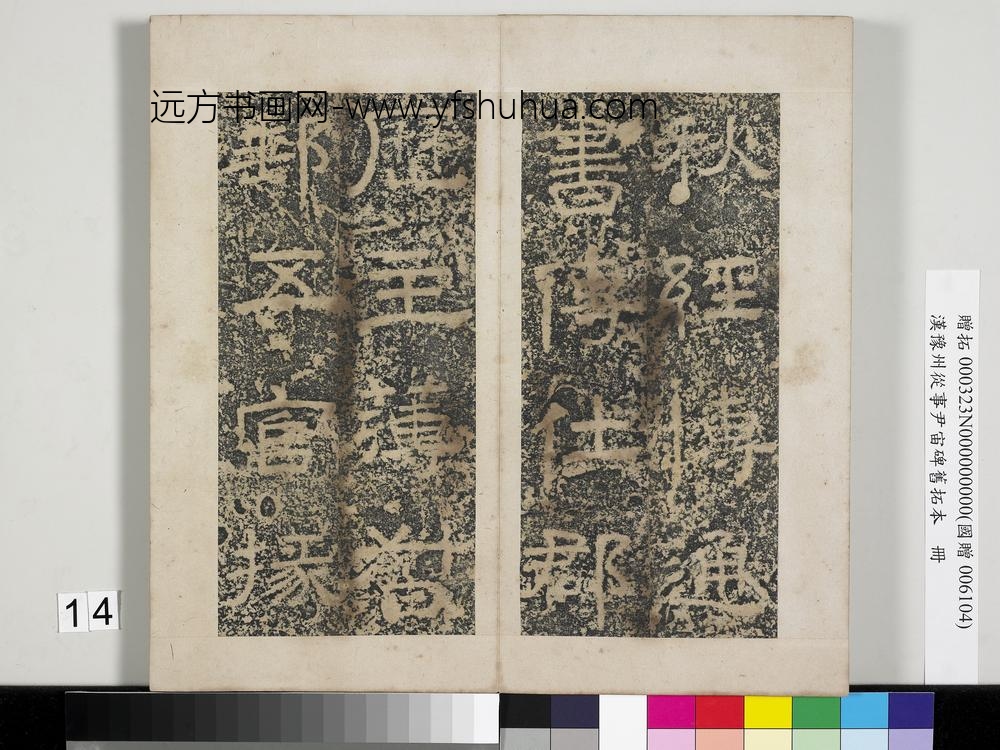 远方书画网-www.yfshuhua.com
秋經博通
書傳仕郡
歷主簿督
郵五官掾
贈拓 000323N000000000(國贈 006104)
漢豫州從事尹宙碑舊拓本 冊
14